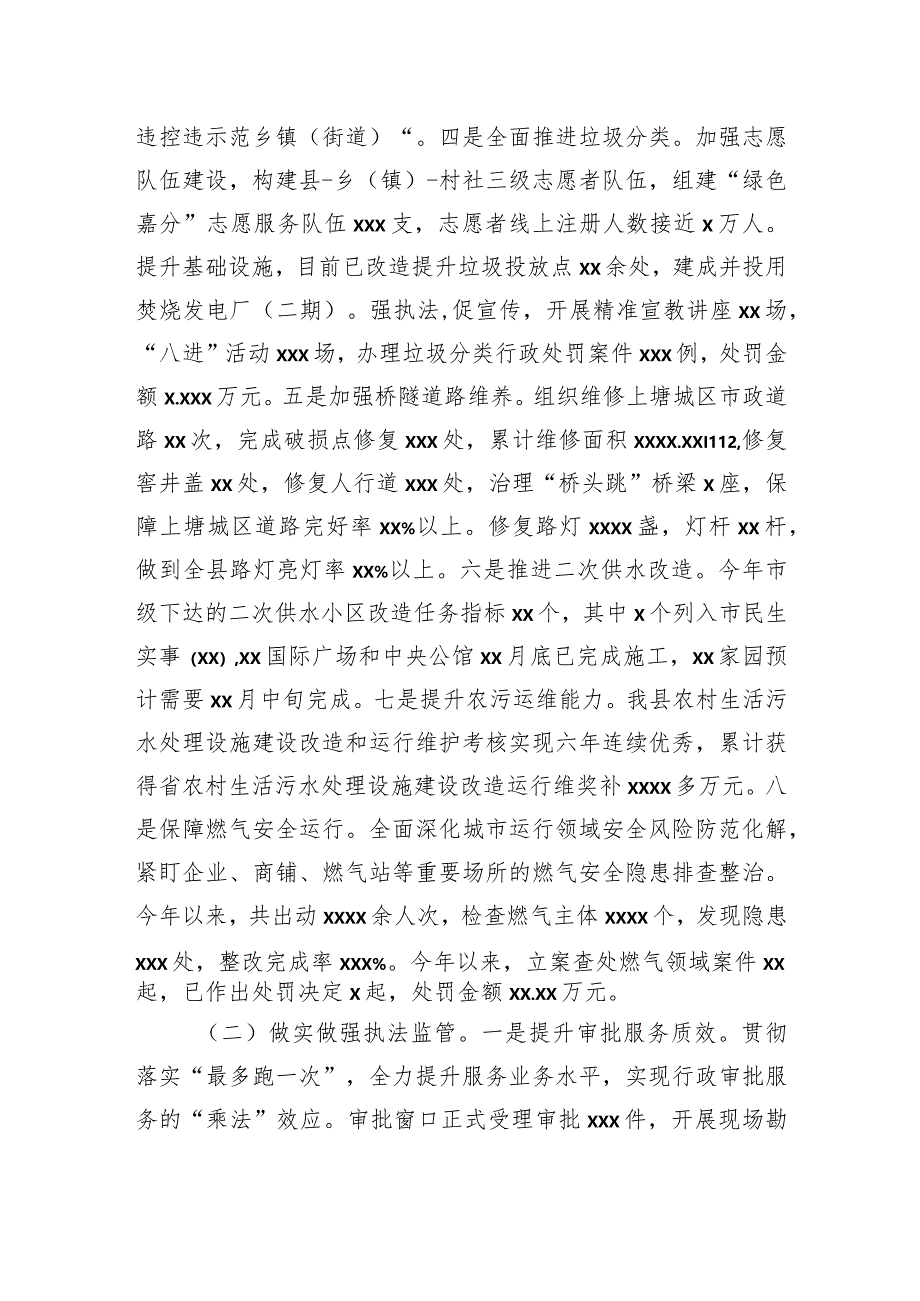 违控违示范乡镇（街道）“。四是全面推进垃圾分类。加强志愿
队伍建设，构建县-乡（镇）-村社三级志愿者队伍，组建“绿色
嘉分”志愿服务队伍 xxx 支，志愿者线上注册人数接近 x 万人。
提升基础设施，目前已改造提升垃圾投放点 xx 余处，建成并投用
焚烧发电厂（二期）。强执法,促宣传，开展精准宣教讲座 xx 场，
“八进”活动 xxx 场，办理垃圾分类行政处罚案件 xxx 例，处罚金
额 x.xxx 万元。五是加强桥隧道路维养。组织维修上塘城区市政道
路 xx 次，完成破损点修复 xxx 处，累计维修面积 xxxx.xxl112,修复
窖井盖 xx 处，修复人行道 xxx 处，治理“桥头跳”桥梁 x 座，保
障上塘城区道路完好率 xx%以上。修复路灯 xxxx 盏，灯杆 xx 杆，
做到全县路灯亮灯率 xx%以上。六是推进二次供水改造。今年市
级下达的二次供水小区改造任务指标 xx 个，其中 x 个列入市民生
实事 (xx) ,xx 国际广场和中央公馆 xx 月底已完成施工，xx 家园预
计需要 xx 月中旬完成。七是提升农污运维能力。我县农村生活污
水处理设施建设改造和运行维护考核实现六年连续优秀，累计获
得省农村生活污水处理设施建设改造运行维奖补 xxxx 多万元。八
是保障燃气安全运行。全面深化城市运行领域安全风险防范化解，
紧盯企业、商铺、燃气站等重要场所的燃气安全隐患排查整治。
今年以来，共出动 xxxx 余人次，检查燃气主体 xxxx 个，发现隐患
xxx 处，整改完成率 xxx%。今年以来，立案查处燃气领域案件 xx
起，已作出处罚决定 x 起，处罚金额 xx.xx 万元。
（二）做实做强执法监管。一是提升审批服务质效。贯彻
落实“最多跑一次”，全力提升服务业务水平，实现行政审批服
务的“乘法”效应。审批窗口正式受理审批 xxx 件，开展现场勘